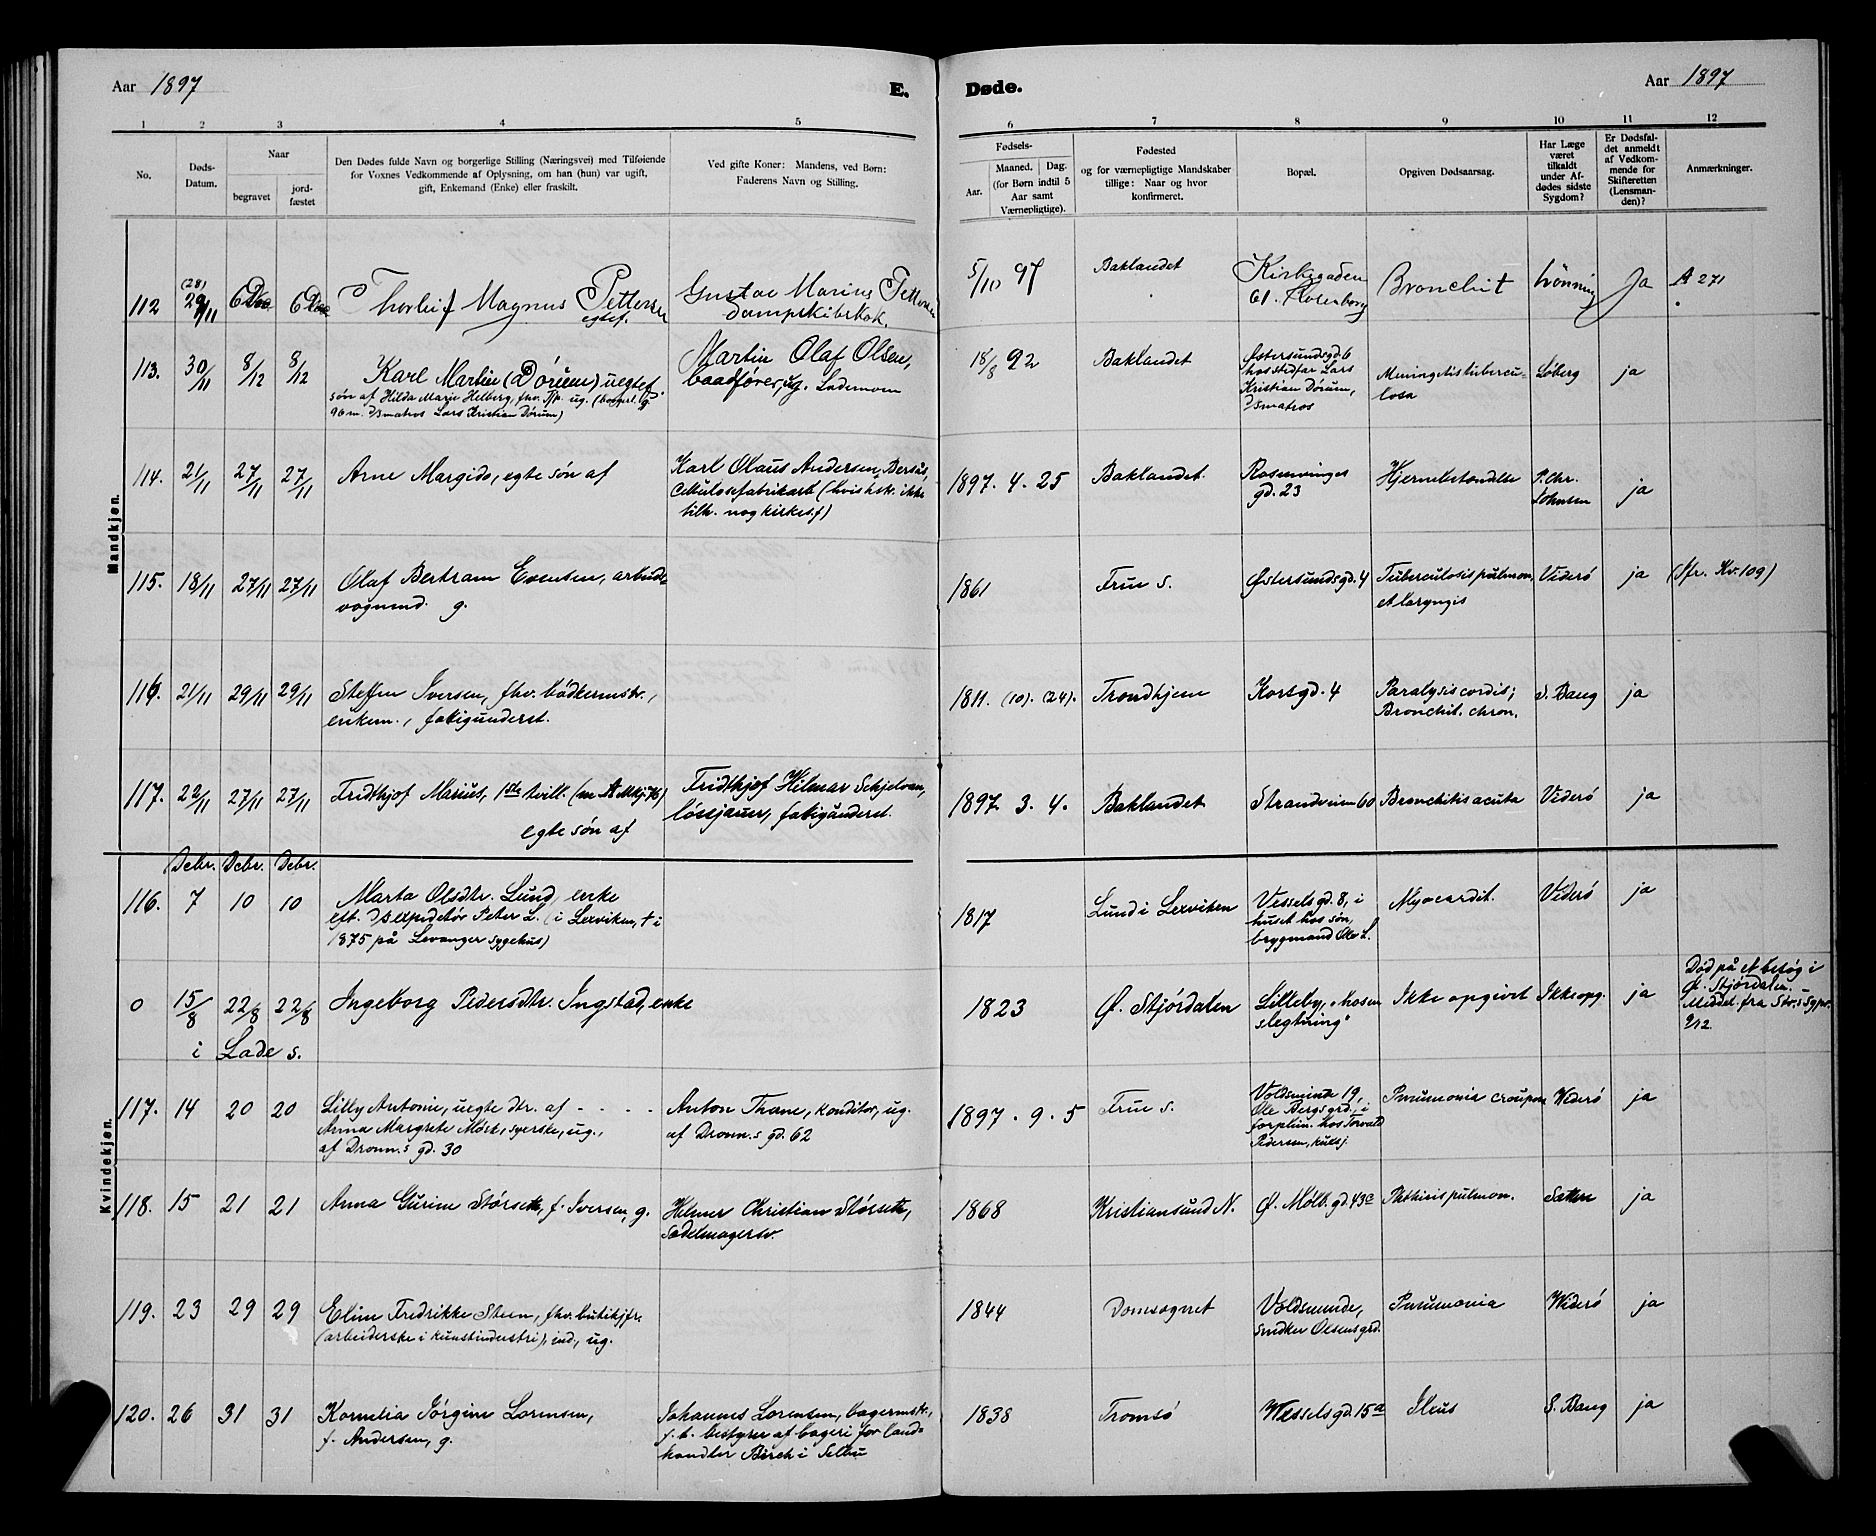 Aar 1897 E. Døde. Aar 1897
1 2 3 4 5 6 7 8 9 10 11 12
No.
Døds-
Datum.
Naar
begravet
jord-
fæstet
Den Dødes fulde Navn og borgerlige Stilling (Næringsvei) med Tilføiende
for Voxnes Vedkommende af Oplysning, om han (hun) var ugift,
gift, Enkemand (Enke) eller fraskilt.
Ved gifte Koner: Mandens, ved Børn:
Faderens Navn og Stilling.
Fødsels-
Aar.
Maaned. Dag.
(for Børn indtil 5
Aar samt
Værnepligtige).
Fødested
og for værnepligtige Mandskaber
tillige: Naar og hvor
konfirmeret.
Bopæl.
Opgiven Dødsaarsag.
Har Læge
været
tilkaldt
under Af-
dødes sidste
Sygdom?
Er Dødsfal-
det anmeldt
af Vedkom-
mende for
Skifteretten
(Lensman-
den)?
Anmærkninger.
Mandkjøn.
112 (28) 29/11 6 Dec 6 Dec
Thorleif Magnus Pettersen
egtef.
Gustav Marius Pettersen
Dampskibskok.
5/10 97
Baklandet
Kirkegaden
61. Rosenborg
Bronchit
Lønning
Ja
A 271
113. 30/11 8/12 8/12
Karl Martin (Dørum) uegtef.
søn af Hilda Marie Helberg, fhv. tjp. ug. (borgerl. g
96 m. D/Smatros Lars Kristian Dørum)
Martin Olaf Olsen,
baadfører, ug. Lademoen
18/8 92
Baklandet
Østersundsgd. 6
hos stidfar Lars
Kristian Dørum,
D/Smatros
Meningitis tubercu-
losa
Løberg
ja
114. 21/11 27/11 27/11
Arne Margido, egte søn af
Karl Olaus Andersen Bersås,
Cellulosefabrikarb (hvis hstr. ikke
tilh. nog kirkes.f)
1897. 4. 25
Baklandet.
Rosenvinges
gd. 23
Hjernebetændelse
P. Chr.
Johnsen
ja
115. 18/11 27/11 27/11
Olaf Bertram Evensen, arbeids-
vognmd. g.
1861
Frue s.
Østersundsgd. 4
Tuberculosis pulmon.
et laryngis
Viderø
ja
(Jfr. Kv. 109)
116. 21/11 29/11 29/11
Steffen Iversen, fhv. bødkermstr.,
enkem., fatigunderst.
1811. (10). (24).
Trondhjem
Korsgd. 4
Paralysis cordis;
Bronchit. chron.
S. Baug
ja
117. 22/11 27/11 27/11
Fridthjof Marius, 1ste tvill. (m A Mkj. 76)
egte søn af
Fridthjof Hilmar Schjelvan,
løssjauer, fatigunderst.
1897 3. 4.
Baklandet
Strandveien 60
Bronchitis acuta
Viderø
ja
Kvindekjøn.
Debr. Debr. Debr.
116. 7 10 10
Marta Olsdtr. Lund, enke
eft. D/Sexpeditør Peter L. (i Lexviken, † i
1875 på Levanger sygehus)
1817
Lund i Lexviken
Vesselsgd. 8, i
huset hos søn,
brygmand Ole L.
Myocardit.
Viderø
ja
0 15/8 22/8 22/8
i Lade s.
Ingeborg Pedersdtr. Ingstad, enke
1823
Ø. Stjørdalen
Lilleby, "Mosens
slegtning"
Ikke opgivet
Ikke opg.
ja
Død på et besøg i
Ø. Stjørdalen. -
Meddel. fra Str.s sgpr.
9/12
117. 14 20 20
Lilly Antonie, uegte dtr. af - - - -
Anna Margrete Møst, syerske, ug.,
af Dronn.s gd. 30
Anton Thane, konditor, ug.
af Dronn.s gd. 62
1897. 9. 5
Frue s.
Voldsminde 19,
Ole Bergs grd., i
forplein. hos Torvald
Pedersen, kuksj.
Pneumonia croupos
Widerø
ja
118. 15 21 21
Anna Gurine Størseth, f. Iversen, g.
Helmer Christian Størseth,
Sadelmagersv.
1868
Kristiansund N.
Ø. Møllb. gd. 43c
Phthisis pulmon.
Sætren
ja
119. 23 29 29
Eline Fredrikke Steen, fhv. butikjfr.
(arbeiderske i kunstindustri), ind., ug.
1844
Domsognet
Voldsminde,
Snedker Olsens grd.
Pneumonia
Widerø
ja
120. 26 31 31
Kornelia Jørgine Lorensen,
f. Andersen, g.
Johannes Lorensen, bagermstr.,
f. t. bestyrer af bageri for land-
handler Birch i Selbu
1838
Tromsø
Wesselsgd. 15a
Ileus
S. Baug
ja